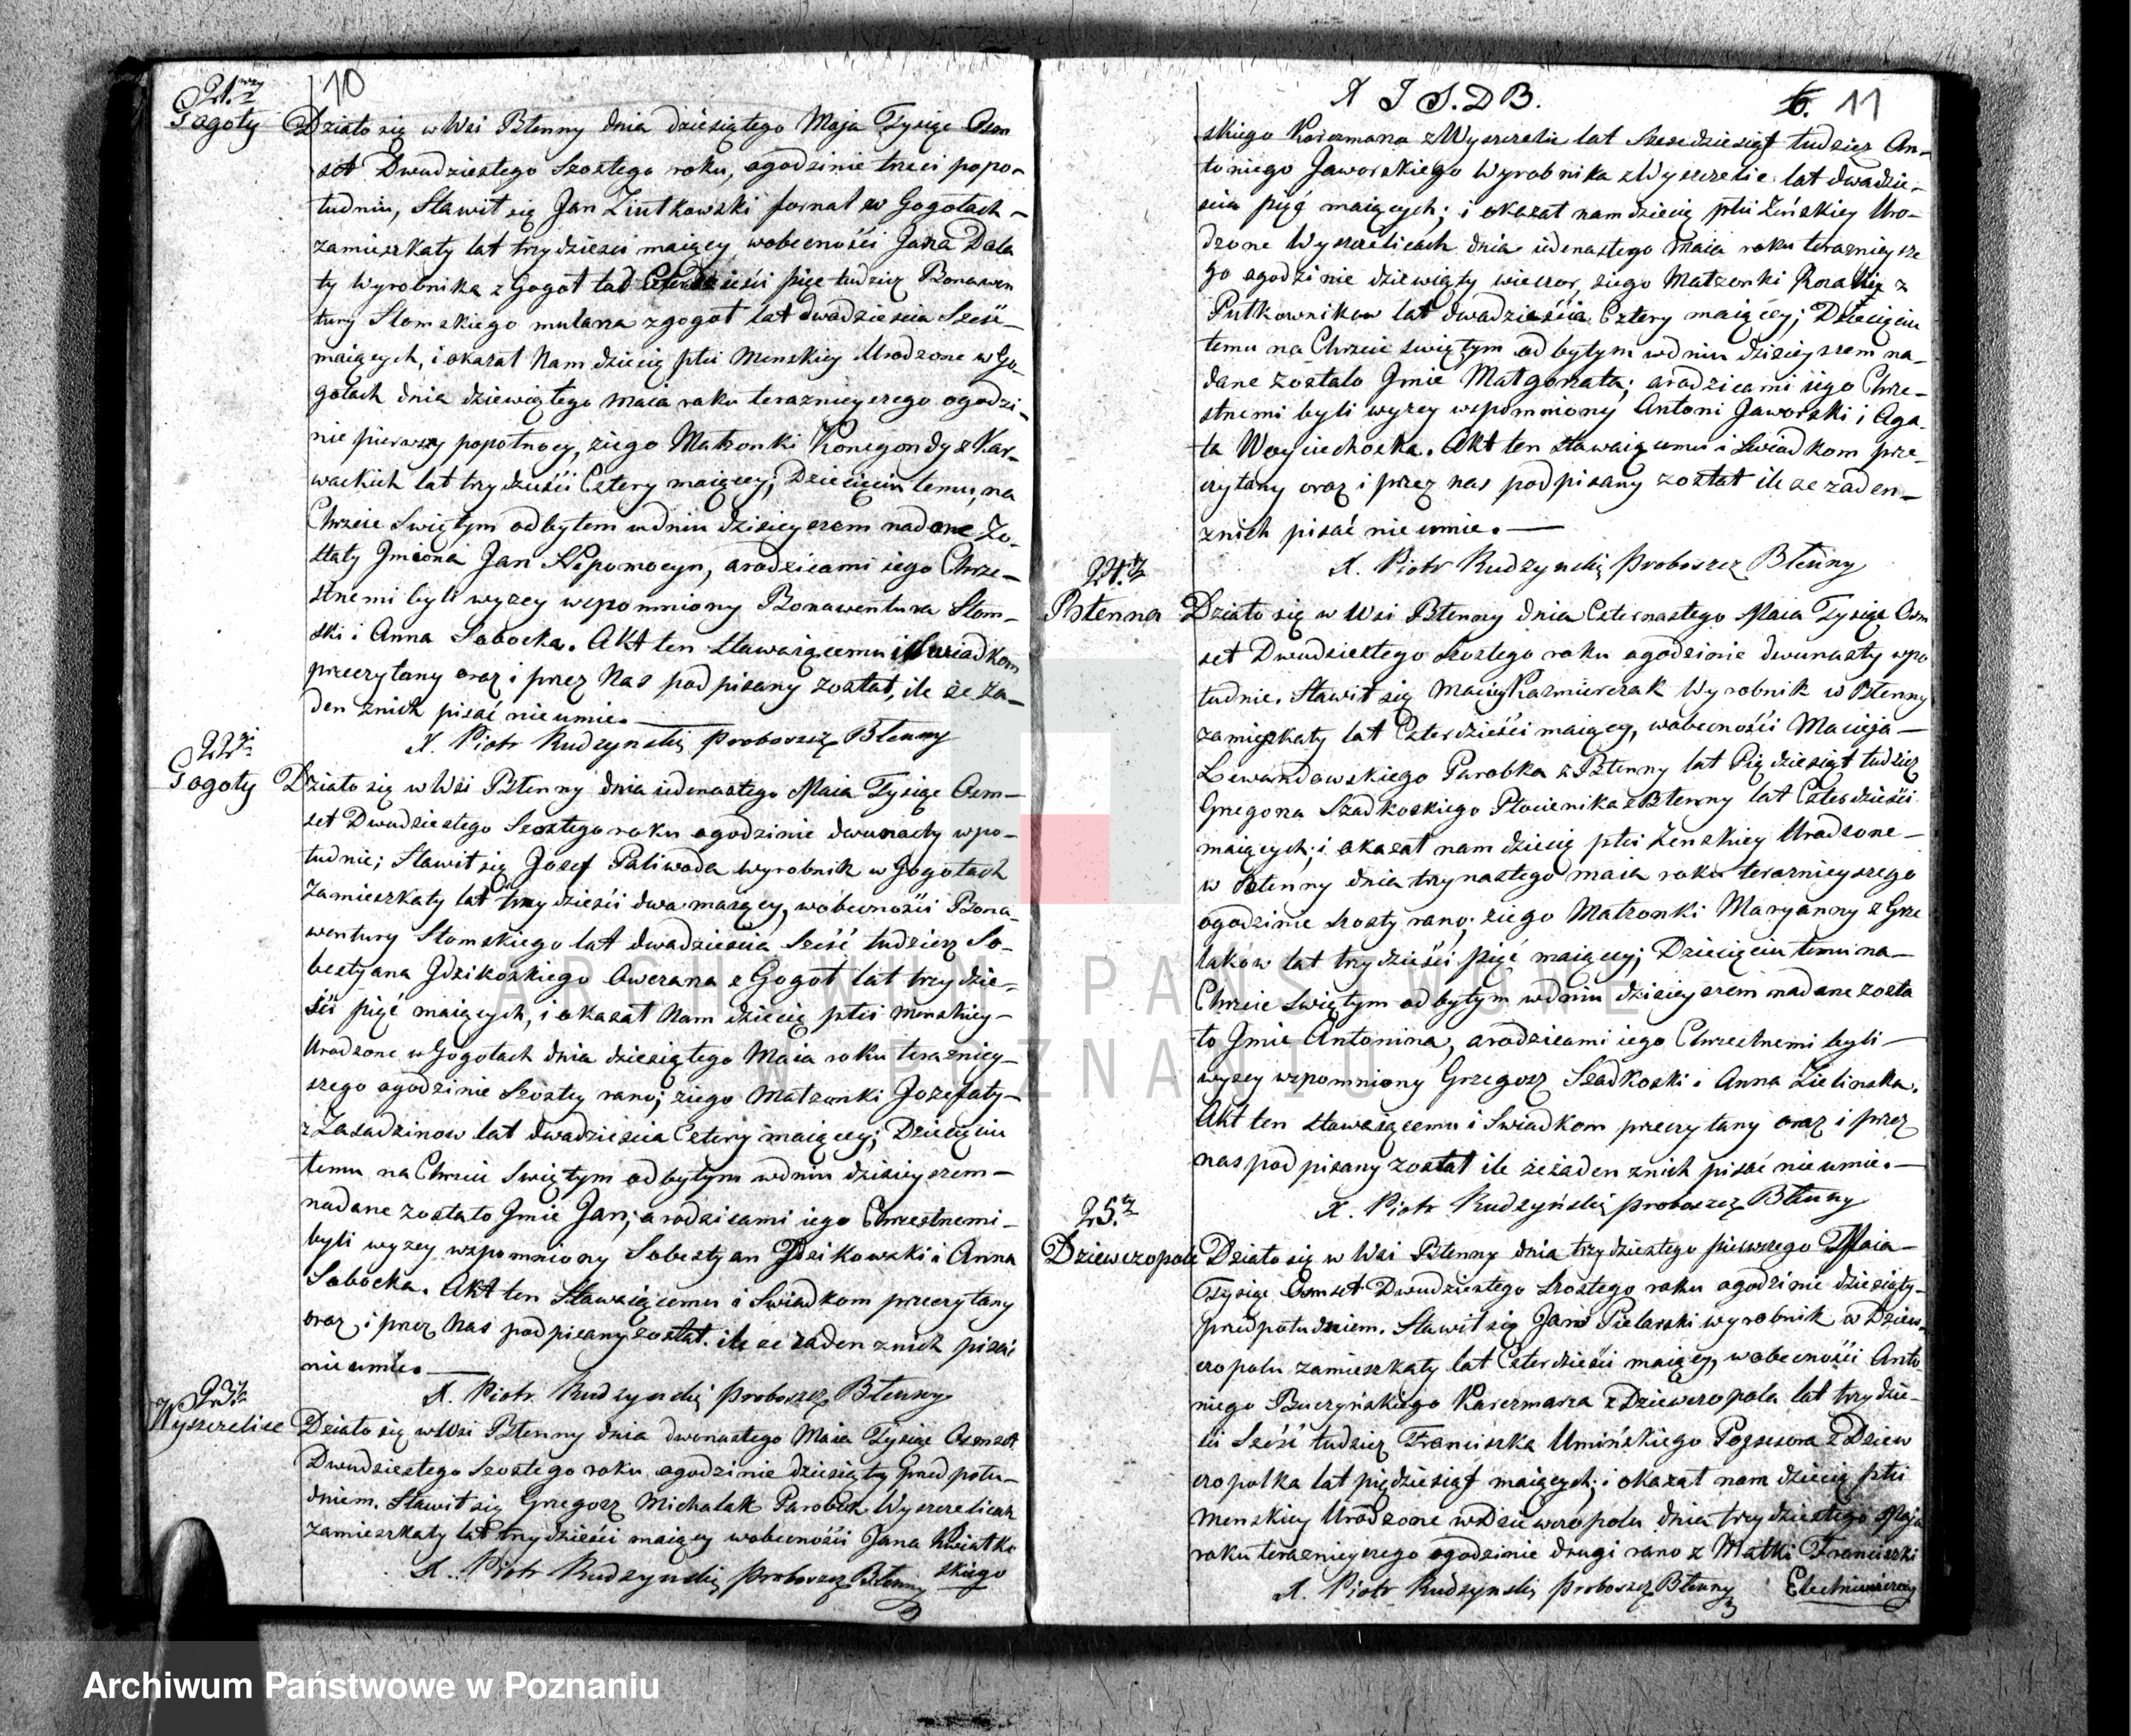 10
21.wszy
Gogoły
Działo się w Wsi Błenny dnia dziesiątego Maja Tysiąc Osm
set Dwudziestego Szostego roku, ogodzinie trzeci popo-
łudniu, Stawił się Jan Ziułkowski fornal w Gogołach -
zamieszkały lat trzydziesci maiący wobecności Jana Dala
ty Wyrobnika z Gogoł lat pięc tudziez Bonawen
tury Słomskiego mularza zgogoł lat dwadziescia Sześć -
maiących, i okazał Nam dziecię płci Menskiey Urodzone w Go-
gołach dnia dziewiątego maia roku teraznieyszego ogodzi-
nie pierwszy popołnocy, ziego Małzonki Konegondy z Kar-
wackich lat trzydzieści Cztery maiącey; Dziecięciu temu, na
Chrzcie Swiętym odbytem wdniu dzisieyszem nadane Zo-
stały Jmiona Jan Nepomocyn, arodzicami iego Chrze-
stnemi byli wyzey wspomniony Bonawentura Słom-
ski i Anna Sobocka. Akt ten stawaiącemu i Swiadkom
przeczytany oraz i przez Nas podpisany został, ile ze Za-
den znich pisać nieumie.
X. Piotr Rudzynski proboszcz Błenny
22gi
Gogoły
Działo się w Wsi Błenny dnia iedenastego Maia Tysiąc Osm-
set Dwudziestego Szostego roku ogodzinie dwunasty wpo-
łudnie; Stawił się Jozef Paliwoda wyrobnik w Gogołach
Zamieszkały lat trzydzieści dwa maiący, wobecności Bona-
wentury Słomskiego lat dwadziescia Sześć tudziesz So-
bestyana Jdzikoskiego Owczarza z Gogoł lat trzydzie-
ści pięć maiących, i okazał Nam dziecię płci menskiey-
Urodzone w Gogołach dnia dziesiątego Maia roku teraznie-
szego ogodzinie Szostey rano; ziego Małzonki Jozefaty-
z Zasadzinow lat dwadziescia Cztery maiącey; Dziecięciu
temu na Chrzcie Swiętym odbytym wdniu dzisieyszem-
nadane zostało Jmie Jan; arodzicami iego Chrzestnemi-
byli wyzey wspomniony Sobestyan Jdzikowski i Anna
Sobocka. Akt ten Stawaiącemu i Swiadkom przeczytany
oraz i przez Nas podpisany został. ile ze zaden znich pisać
nieumie.
X. Piotr Rudzynski proboszcz Błenny
23.
Wyszczelice
Działo się wWsi Błenny dnia dwunastego Maia Tysiąc Osmset
Dwudziestego Szostego roku ogodzinie dziesiąty przed połu-
dniem. Stawił się Grzegorz Michalak Parobek Wyszczelicach
zamieszkały lat trzydzieści maiący wobecności Jana Kwiatko
skiego
X. Piotr Rudzynski proboszcz Błenny
N I S. D B.
6. 11
skiego Karczmarza z Wyszczelic lat Szesćdziesiąt tudziez An-
toniego Jaworskiego Wyrobnika z Wyszczelic lat dwadzie-
scia pięć maiących; i okazał nam dziecię płci Zeńskiey Uro-
dzone Wyszczelicach dnia iedenastego Maia roku teraznieysze
go ogodzinie dziewiąty wieczor, ziego Małzonki Rozalii z
Pułkownikow lat dwadzieścia Cztery maiącéy; Dziecięciu
temu na Chrzcie świętym odbytym wdniu dzisieyszem na-
dane zostało Jmie Małgorzata; arodzicami iego Chrze-
stnemi byli wyzey wspomniony Antoni Jaworski i Aga-
ta Woyciechoska. Akt ten stawaiącemu i Swiadkom prze-
czytany oraz i przez nas podpisany został ile ze zaden-
znich pisać nieumie.
X. Piotr Rudzynski proboszcz Błenny
24.ty
Błenna
Działo się w Wsi Błenny dnia Czternastego Maia Tysiąc Osm
set Dwudziestego szostego roku ogodzinie dwunasty wpo
łudnie. Stawił się Maciey Kazmierczak Wyrobnik w Błenny
zamieszkały lat Czterdzieści maiący, wobecności Macieja-
Lewandowskiego Parobka z Błenny lat Piędziesiąt tudziez
Grzegorza Szadkoskiego Płociennika z Błenny lat Czterdzieści
maiących; i okazał nam dziecię płci Zenskiey Urodzone-
w Błenny dnia trzynastego maia roku teraznieyszego
ogodzinie szosty rano, ziego Małzonki Maryanny z Grze
lakow lat trzydzieści pięć maiącey; Dziecięciu temu na-
Chrzcie Swiętym odbytym wdniu dzisieyszem nadane zosta
ło Jmie Antonina, arodzicami iego Chrzestnemi byli-
wyzey wspomniony Grzegorz Szadkoski i Anna Zielinska.
Akt ten stawaiącemu i Swiadkom przeczytany oraz i przez
nas podpisany został ile zezaden znich pisać nieumie.-
X. Piotr Rudzyński proboszcz Błenny
25.ty
Dziewczopole
Działo się w Wsi Błenny dnia trzydziestego pierwszego Maia-
Tysiąc Osmset Dwudziestego szostego roku ogodzinie dziesiąty-
przedpołudniem. Stawił się Jan Pielarski wyrobnik w Dziew-
czopolu zamieszkały lat Czterdzieści maiący, wobecności Anto
niego Buczyńskiego Karczmarza z Dziewczopola lat trzydzie-
ści Sześć tudziez Franciszka Umińskiego Possesora z Dziew
czopolka lat pięćdziesiąt maiących; i okazał nam dziecię płci
Menskiey Urodzone wDziewczopolu dnia trzydziestego Maja
roku teraznieyszego ogodzinie drugi rano z Matki Franciszki
X. Piotr Rudzynski proboszcz Błenny
ARCHIWUM PAŃSTWOWE
W POZNANIU
Archiwum Państwowe w Poznaniu